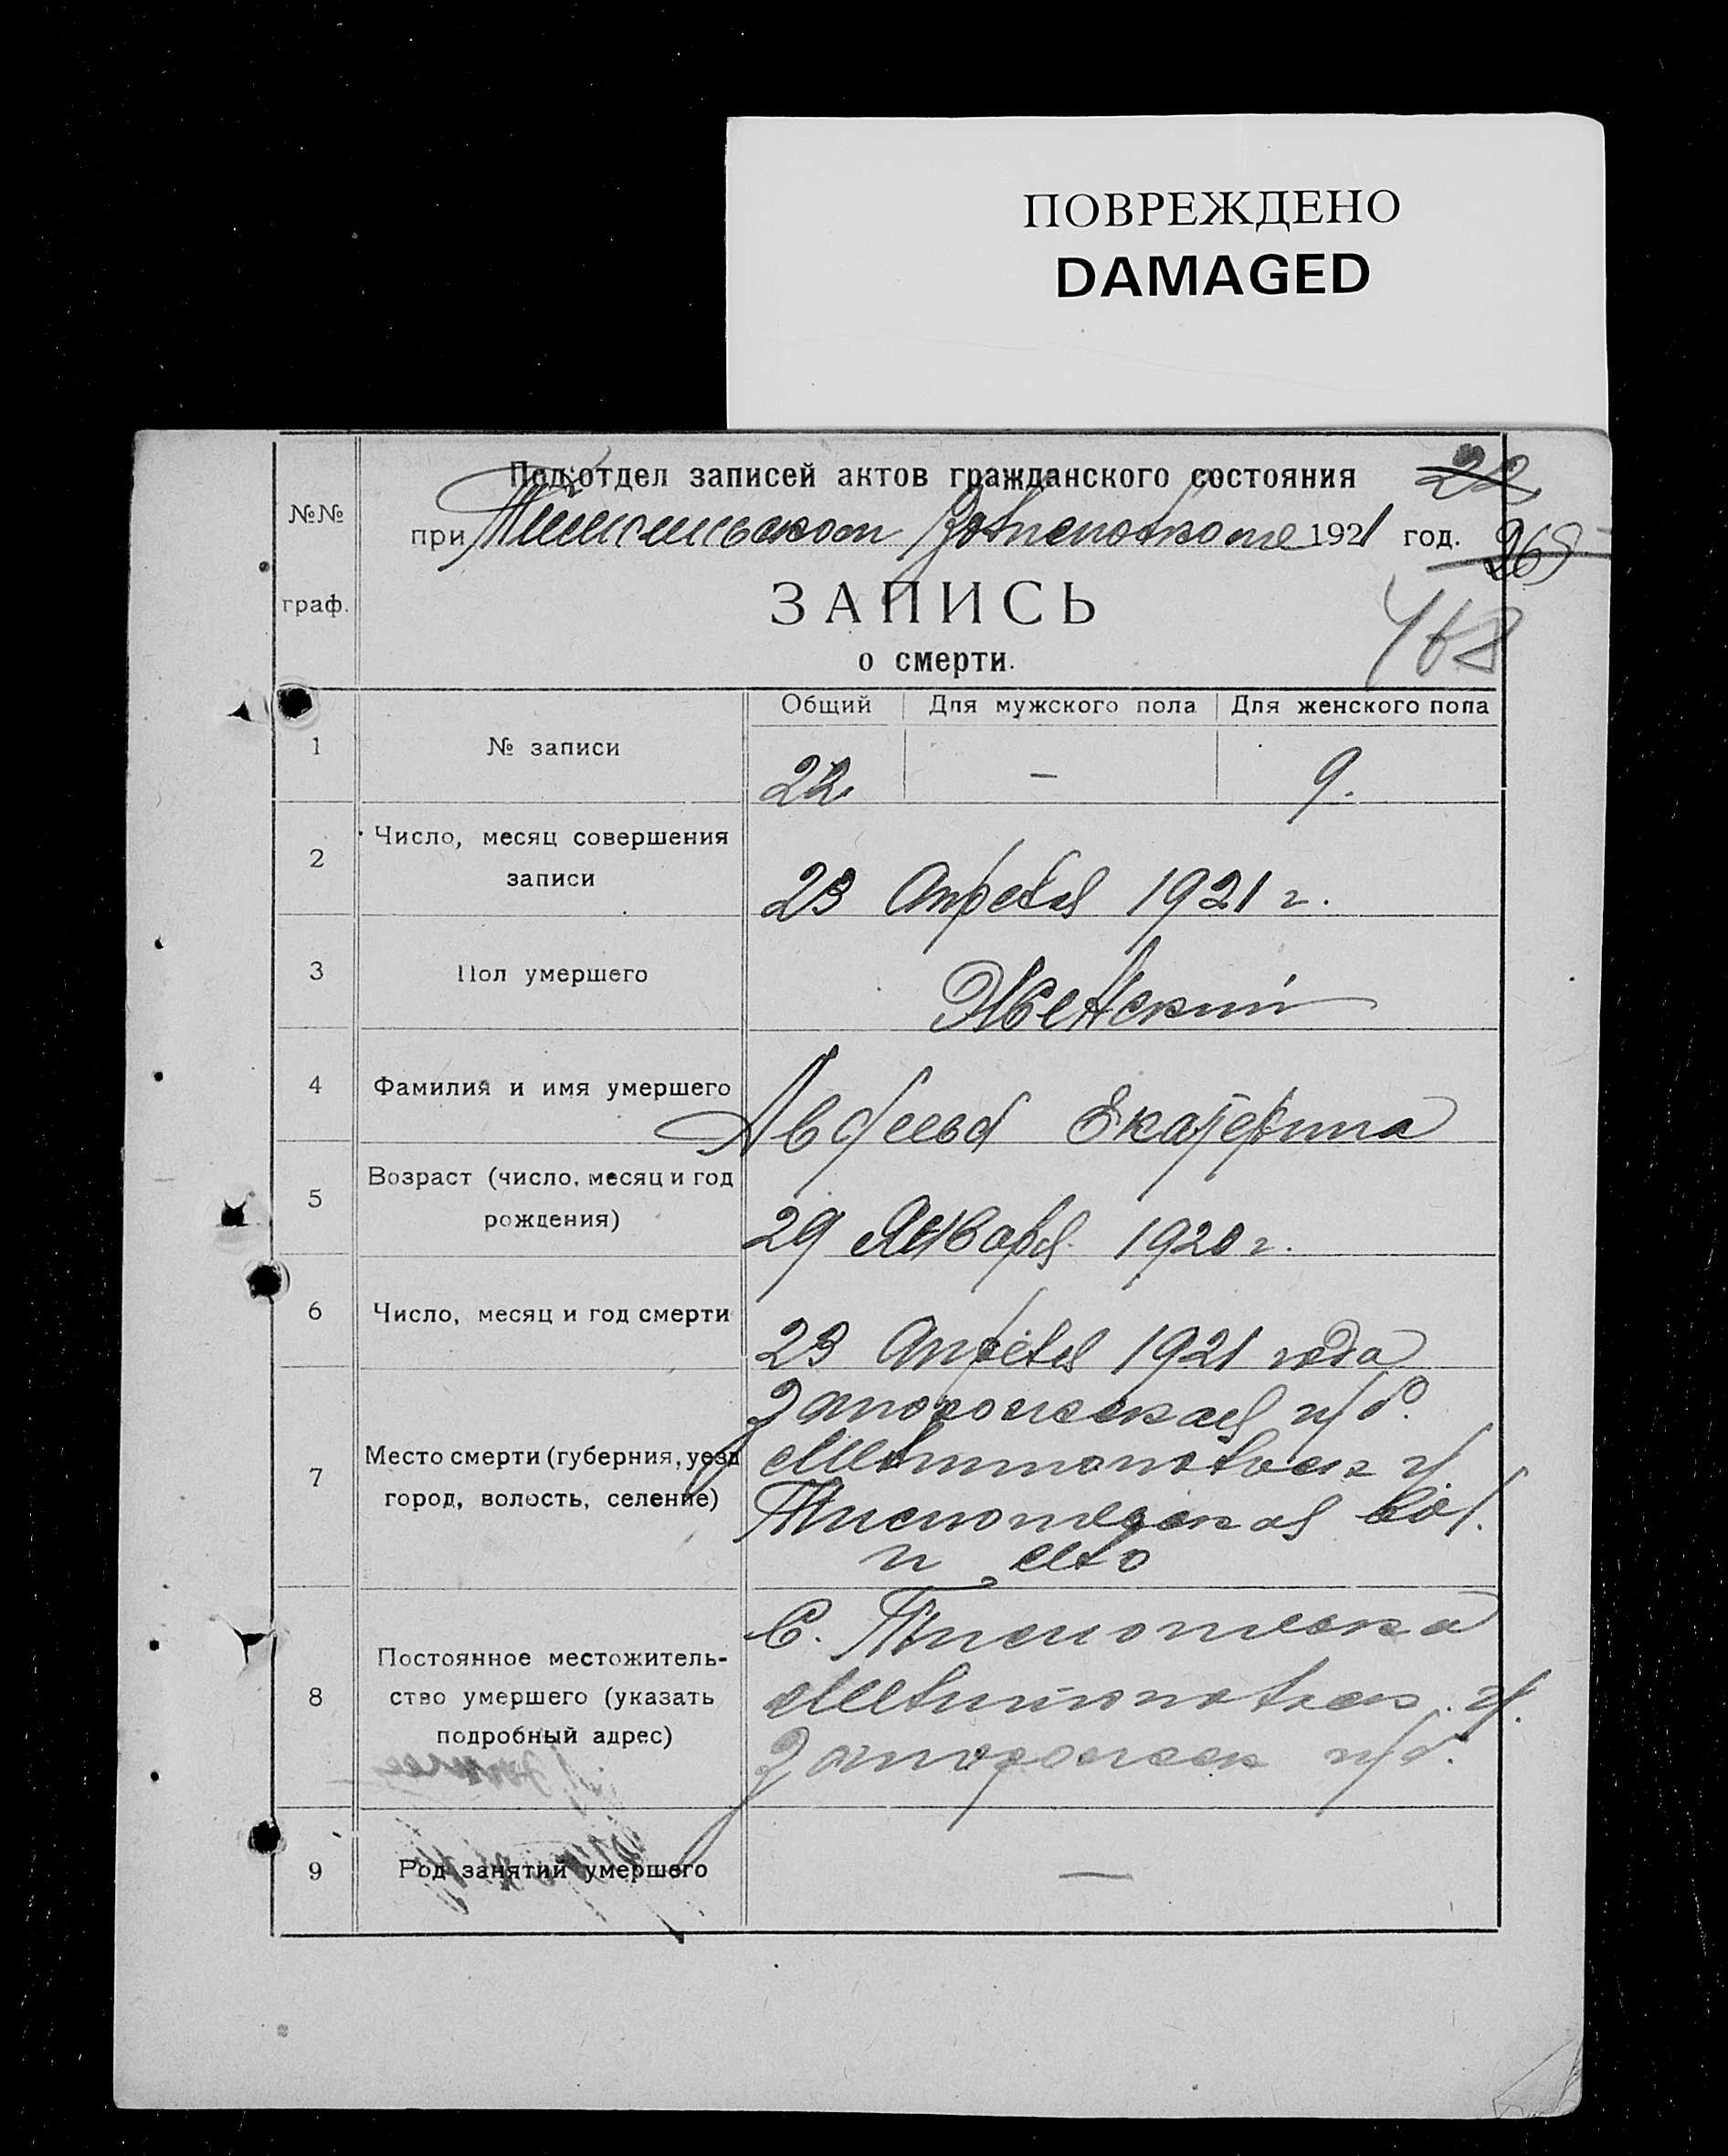 ПОВРЕЖДЕНО
DAMAGED
Под'отдел записей актов гражданского состояния
22
№№
при 1921 год.
268
граф.
ЗАПИСЬ
468
о смерти.
Общий Для мужского пола Для женского пола
1 № записи 22 — 9.
2 Число, месяц совершения
записи
23 Апреля 1921 г.
3 Пол умершего Женский
4 Фамилия и имя умершего Екатерина
5 Возраст (число, месяц и год
рождения)
29 Января 1920 г.
6 Число, месяц и год смерти 23 Апреля 1921 года
7 Место смерти (губерния, уезд
город, волость, селение)
Запорожская г/б.
Мелитопольск у.
вол.
и село
8 Постоянное местожитель-
ство умершего (указать
подробный адрес)
С.
Мелитопольск. у.
Запорожск г/б.
9 Род занятий умершего —